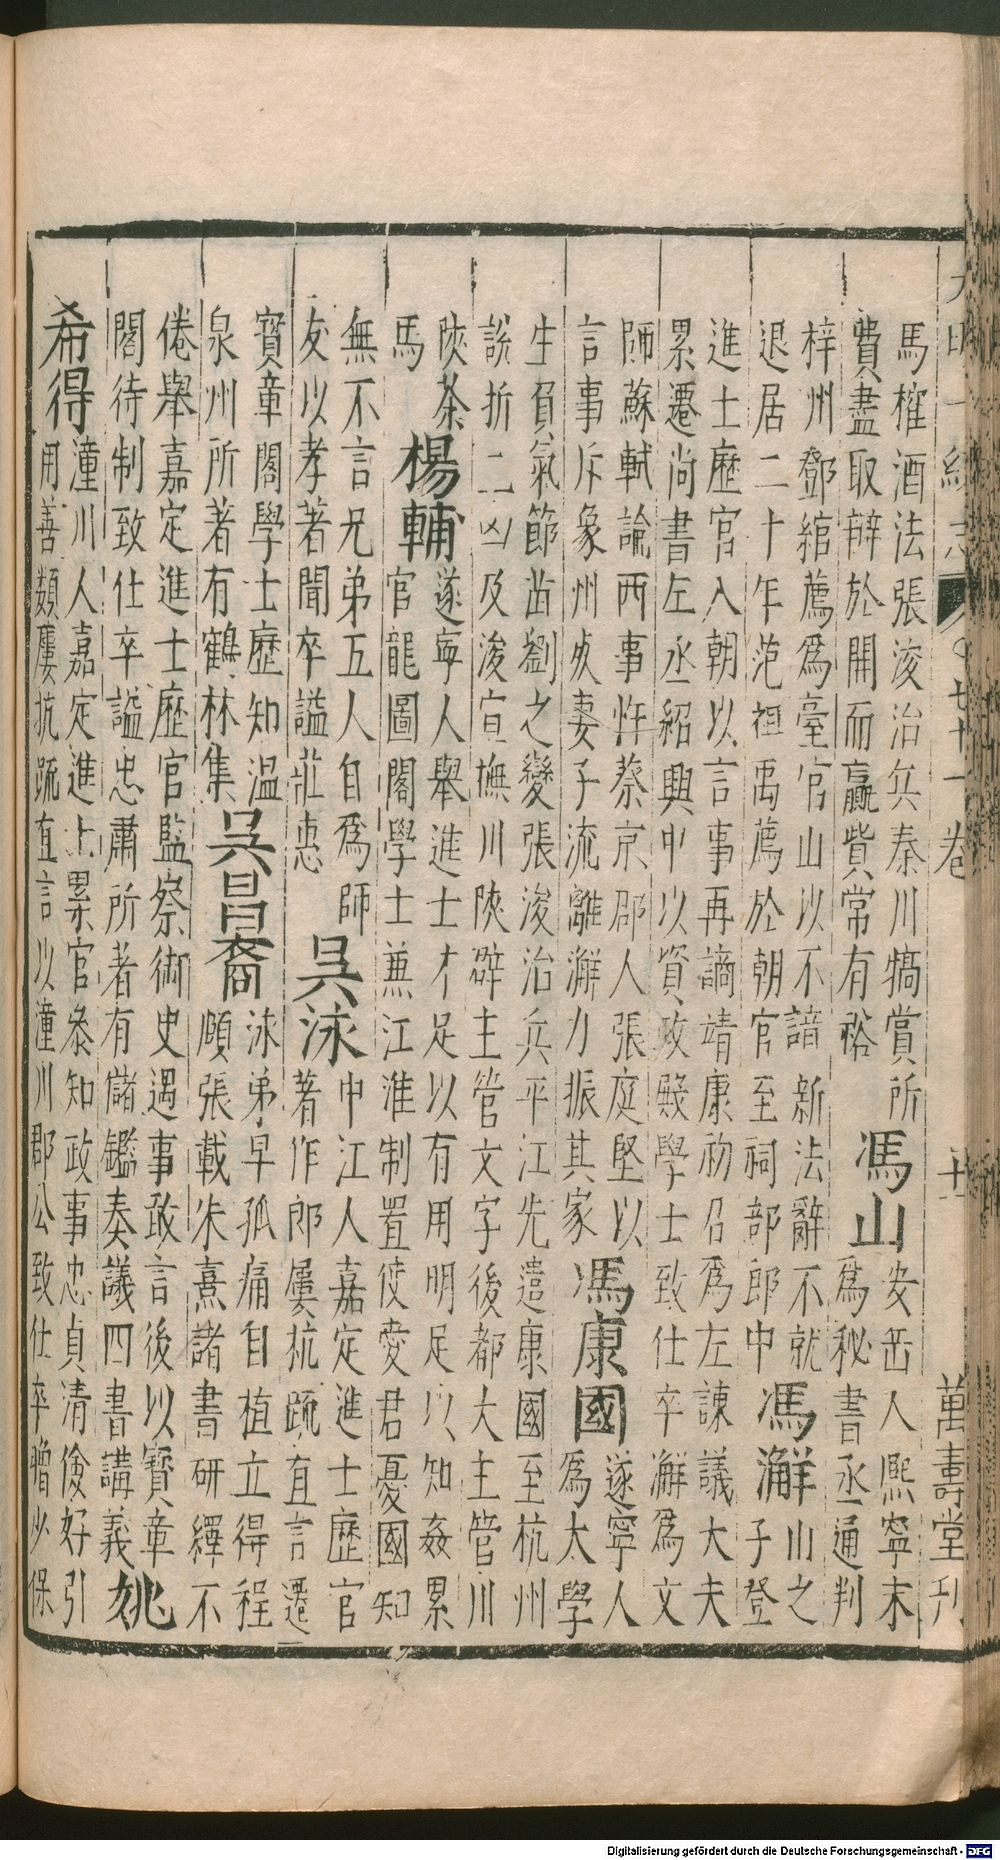 大明一統志 七十一卷 十 萬壽堂刊
馬榷酒法張浚治兵秦川犒賞所
費盡取辦於開而贏貲常有裕
馮山
安岳人熙寧末
爲秘書丞通判
梓州鄧綰薦爲臺官山以不諳新法辭不就
退居二十年范祖禹薦於朝官至祠部郎中
馮澥
山之
子登
進士歷官入朝以言事再謫靖康初召爲左諫議大夫
累遷尚書左丞紹興中以資政殿學士致仕卒澥爲文
師蘇軾論西事忤蔡京郡人張庭堅以
言事斥象州死妻子流離澥力振其家
馮康國
遂寧人
爲太學
生負氣節苗劉之變張浚治兵平江先遣康國至杭州
說折二凶及浚宣撫川陝辟主管文字後都大主管川
陝茶
馬
楊輔
遂寧人舉進士才足以有用明足以知姦累
官龍圖閣學士兼江淮制置使愛君憂國知
無不言兄弟五人自爲師
友以孝著聞卒謚莊惠
吳泳
中江人嘉定進士歷官
著作郎屢抗疏直言遷
寶章閣學士歷知溫
泉州所著有鶴林集
吳昌裔
泳弟早孤痛自植立得程
頤張載朱熹諸書研繹不
倦舉嘉定進士歷官監察御史遇事敢言後以寶章
閣待制致仕卒謚忠肅所著有儲鑑奏議四書講義
姚
希得
潼川人嘉定進士累官參知政事忠貞清儉好引
用善類屢抗疏直言以潼川郡公致仕卒贈少保
Digitalisierung gefördert durch die Deutsche Forschungsgemeinschaft - DFG